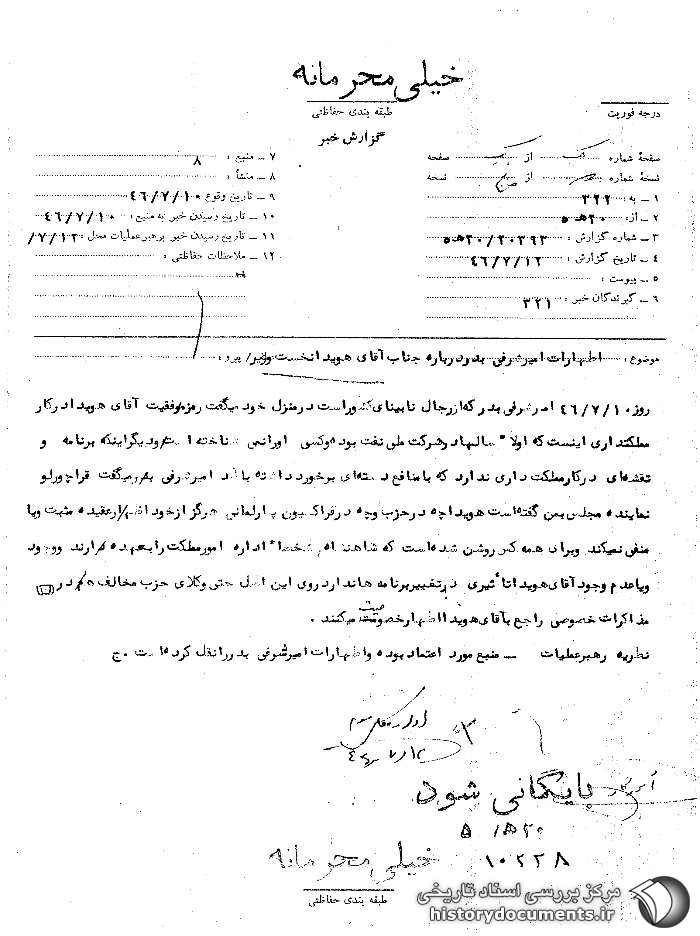 خیلی محرمانه
طبقه بندی حفاظتی
درجه فوریت
گزارش خبر
صفحه شماره یک از یک صفحه
نسخه شماره از نسخه
۱ – به : ۳۲۲
۲ – از : ۲۰ ه ۵
۳ – شماره گزارش : ۲۰۳۹۳ / ۲۰ ه ۵
۴ – تاریخ گزارش : ۴۶/۷/۱۲
۵ – پیوست :
۶ – گیرندگان خبر : ۳۲۱
۷ – منبع : ۸
۸ – منشأ :
۹ – تاریخ وقوع ۴۶/۷/۱۰
۱۰ – تاریخ رسیدن خبر به منبع : ۴۶/۷/۱۰
۱۱ – تاریخ رسیدن خبر برهبر عملیات محل : ۷/۱۲/
۱۲ – ملاحظات حفاظتی :
موضوع : اظهارات امیرشرفی بدر درباره جناب آقای هویدا نخست وزیر / پیرو :
روز ۴۶/۷/۱۰ امیرشرفی بدر که از رجال نابینای کشور است در منزل خود میگفت رمز موفقیت آقای هویدا در کار
مملکتداری اینست که اولا سالها در شرکت ملی نفت بوده و کسی او را نمی شناخته است و دیگر اینکه برنامه و
نقشه‌ای در کار مملکت داری ندارد که با منافع دسته‌ای برخورد داشته باشد امیرشرفی بدر میگفت قراچورلو
نماینده مجلس بمن گفته است هویدا چه در حزب و چه در فراکسیون پارلمانی هرگز از خود اظهار عقیده مثبت ویا
منفی نمیکند و برای همه کس روشن شده است که شاهنشاه شخصاً اداره امور مملکت را بعهده دارند و وجود
ویا عدم وجود آقای هویدا تأثیری در تغییر برنامه ها ندارد روی این اصل حتی وکلای حزب مخالف هم در
مذاکرات خصوصی راجع بآقای هویدا اظهار خصومت میکنند .
نظریه رهبر عملیات – منبع مورد اعتماد بوده و اظهارات امیرشرفی بدر را نقل کرده است . ج
بایگانی شود
۲۰ ه ۵
۱۰۲۲۸
خیلی محرمانه
طبقه بندی حفاظتی
مرکز بررسی اسناد تاریخی
historydocuments.ir